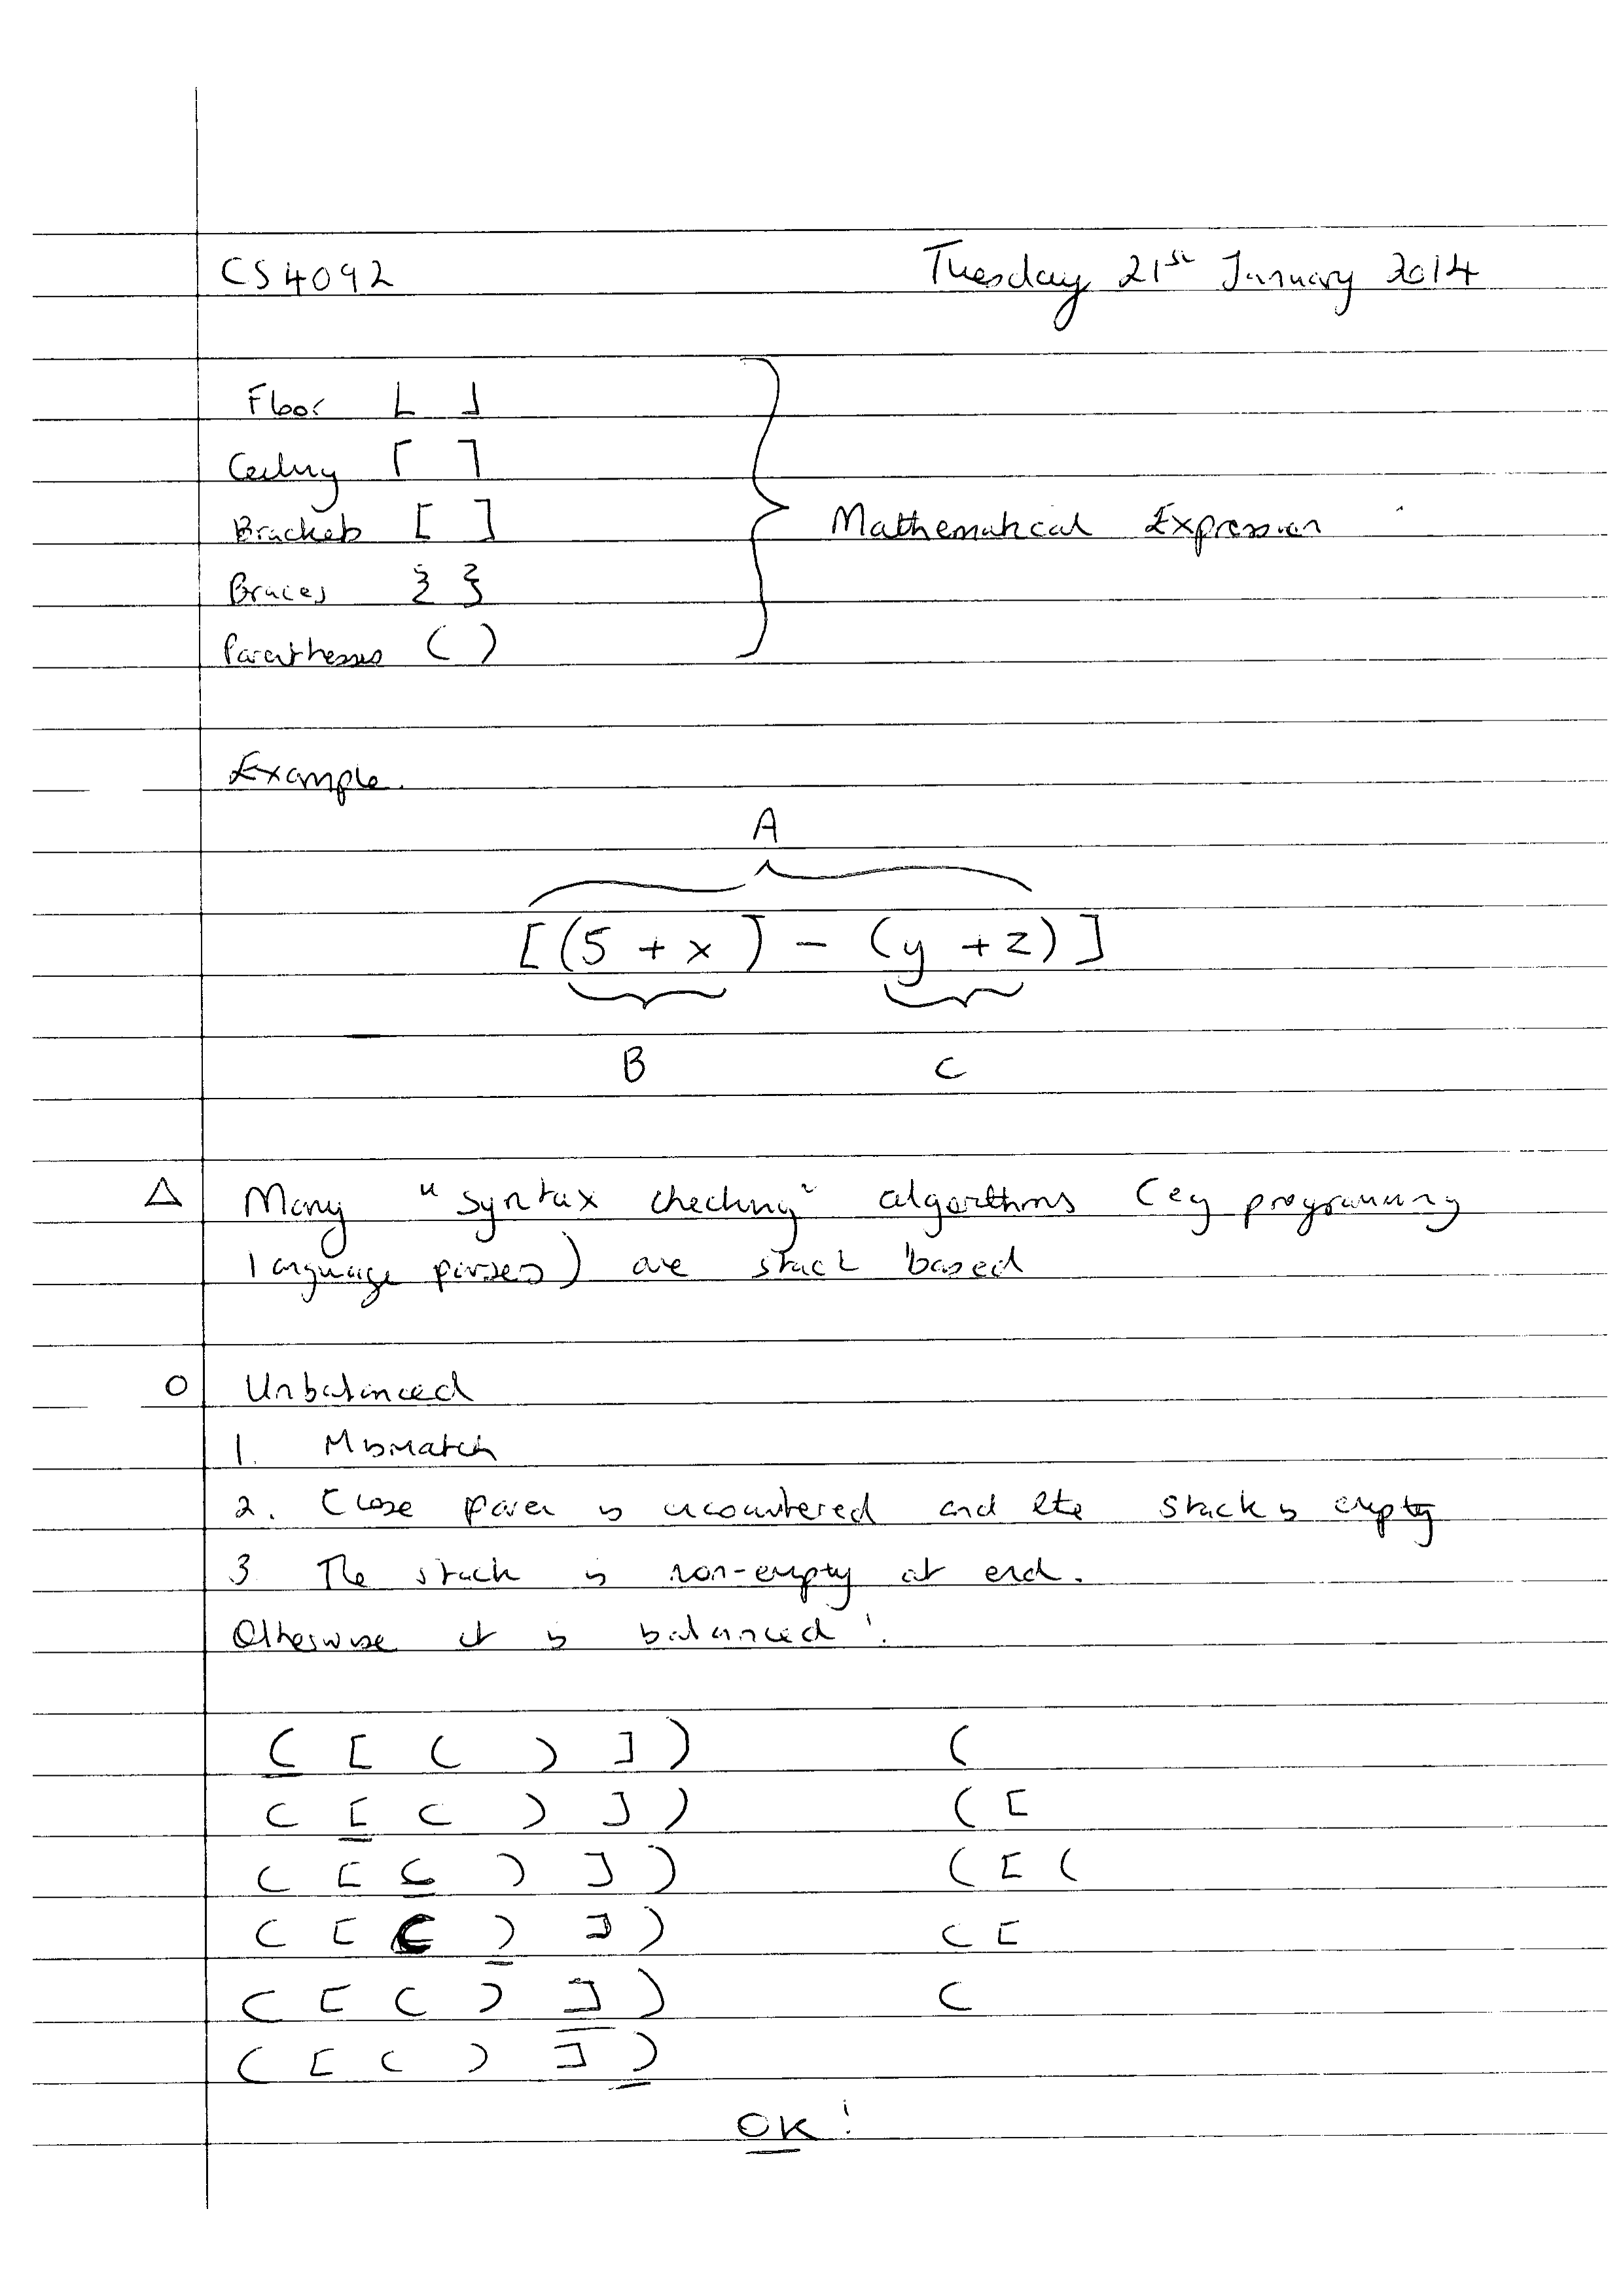 CS4092 Tuesday 21st January 2014
Floor ⌊ ⌋
Ceiling ⌈ ⌉
Brackets [ ]
Braces { }
Parentheses ( )
Mathematical Expression
Example.
A
[(5 + x) - (y + z)]
B C
Δ Many "syntax checking" algorithms (eg programming
language parsers) are stack based
O Unbalanced
1. Mismatch
2. Close paren is encountered and the stack is empty
3 The stack is non-empty at end.
Otherwise it is balanced!
( [ ( ) ] ) (
( [ ( ) ] ) ( [
( [ ( ) ] ) ( [ (
( [ ( ) ] ) ( [
( [ ( ) ] ) (
( [ ( ) ] )
OK!